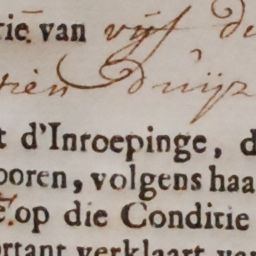 rie van vijf du
rien duijz
t d'Inroepinge, d
ooren, volgens haa
e op die Conditie
ortant verklaart van